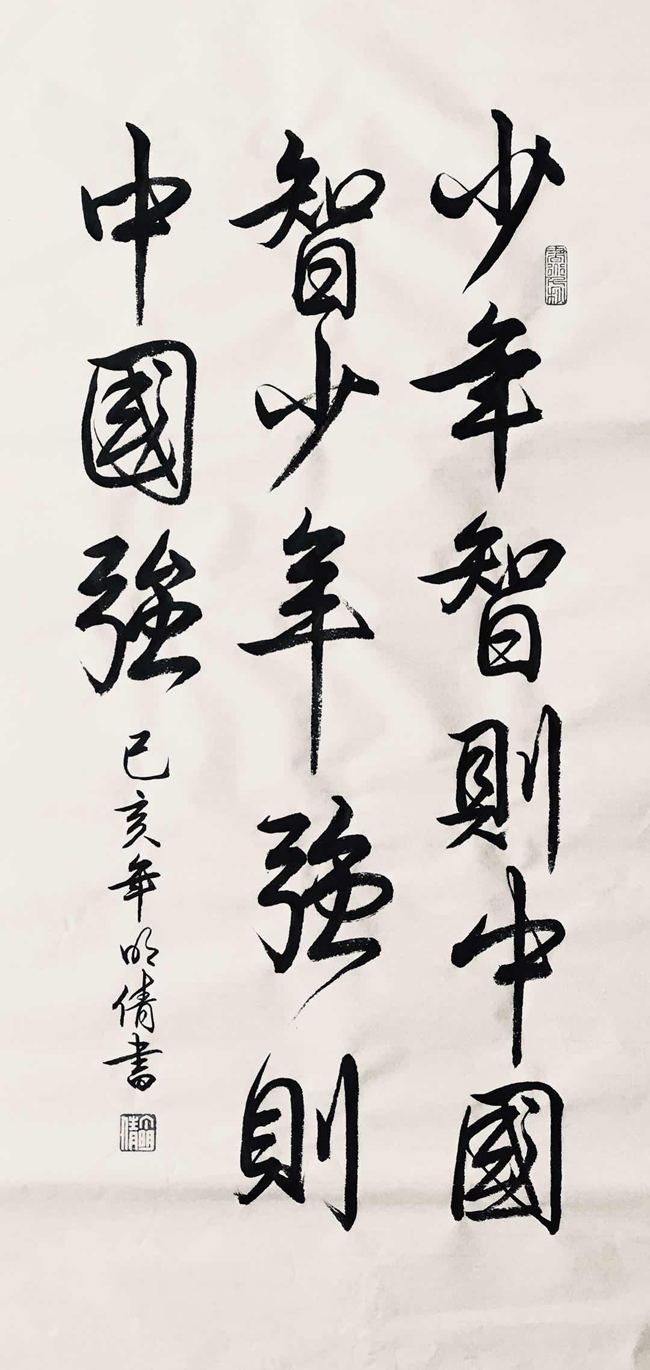 少年智則中國
智少年強則
中國強
己亥年明倩書
明倩